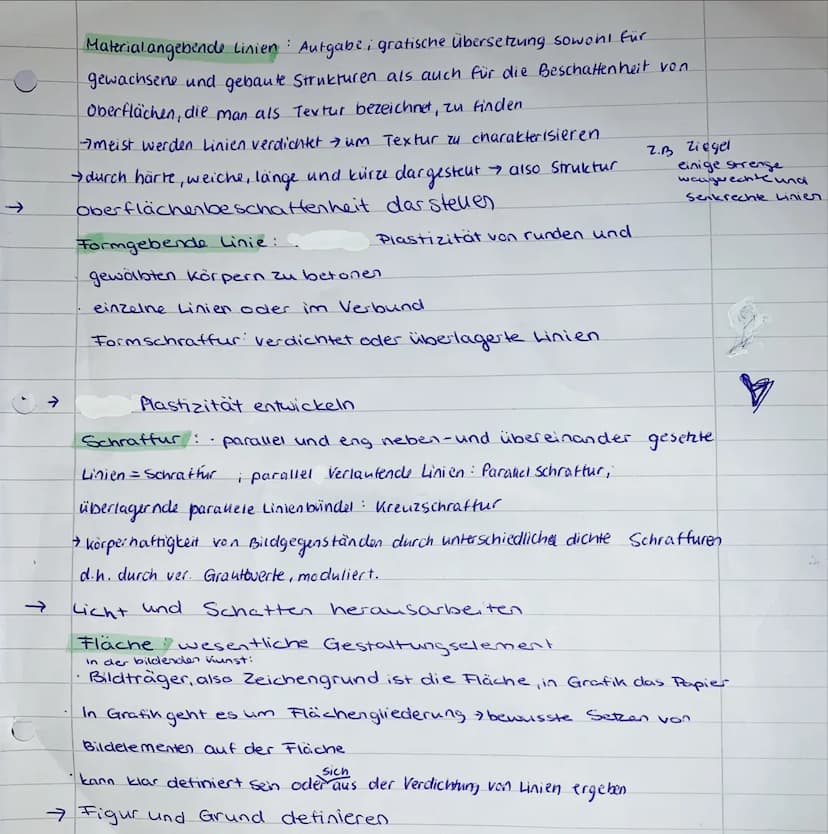 Materialangebende Linien: Aufgabe; grafische Übersetzung sowohl für
gewachsene und gebaute Strukturen als auch für die Beschaffenheit von
Oberflächen, die man als Textur bezeichnet, zu finden
→ meist werden Linien verdichtet → um Textur zu charakterisieren
z.B Ziegel
einige strenge
waagrechte und
senkrechte Linien
→ durch härte, weiche, länge und kürze dargestellt → also Struktur
→ Oberflächenbeschaffenheit darstellen
Formgebende Linie: Plastizität von runden und
gewölbten Körpern zu betonen
· einzelne Linien oder im Verbund
Formschraffur: verdichtet oder überlagerte Linien
→ Plastizität entwickeln
Schraffur: · parallel und eng neben- und übereinander gesetzte
Linien = Schraffur ; parallel verlaufende Linien: Parallelschraffur;
überlagernde parallele Linienbündel: Kreuzschraffur
→ Körperhaftigkeit von Bildgegenständen durch unterschiedliche dichte Schraffuren
d.h. durch ver. Grautwerte, moduliert.
→ Licht und Schatten herausarbeiten
Fläche: wesentliche Gestaltungselement
in der bildenden Kunst:
· Bildträger, also Zeichengrund ist die Fläche, in Grafik das Papier
· In Grafik geht es um Flächengliederung → bewusste Setzen von
Bildelementen auf der Fläche
· kann klar definiert sein oder sich aus der Verdichtung von Linien ergeben
→ Figur und Grund definieren